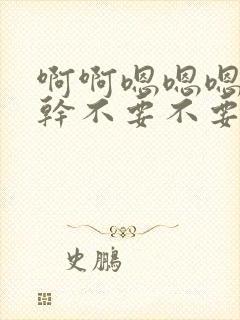 啊啊嗯嗯嗯
幹不要不要
史鵬